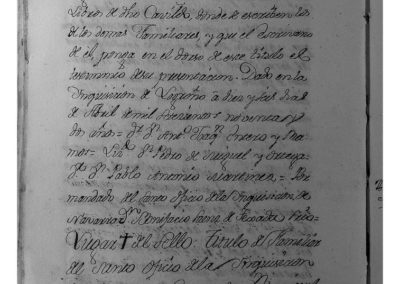 Libros de dho Cavildo, donde se escriven los
de los demas Familiares, y que el escrivano
de el, ponga en el dorso de este titulo el
testimonio de su presentacion. Dado en la
Inquisicion de Logroño a diez y seis dias
de Abril de mil setecientos noventa y
dos años= Dr. Dn
mos= Lizdo Dn Pedro de Miguel y Ortega=
Dr. Dn Pablo Antonio Martinez= Por
mandado del Santo Oficio de la Inquisicion de
Navarra Dn Bonifacio
Lugar † del Sello. Titulo de Familiar
del Santo Oficio de la Inquisicion